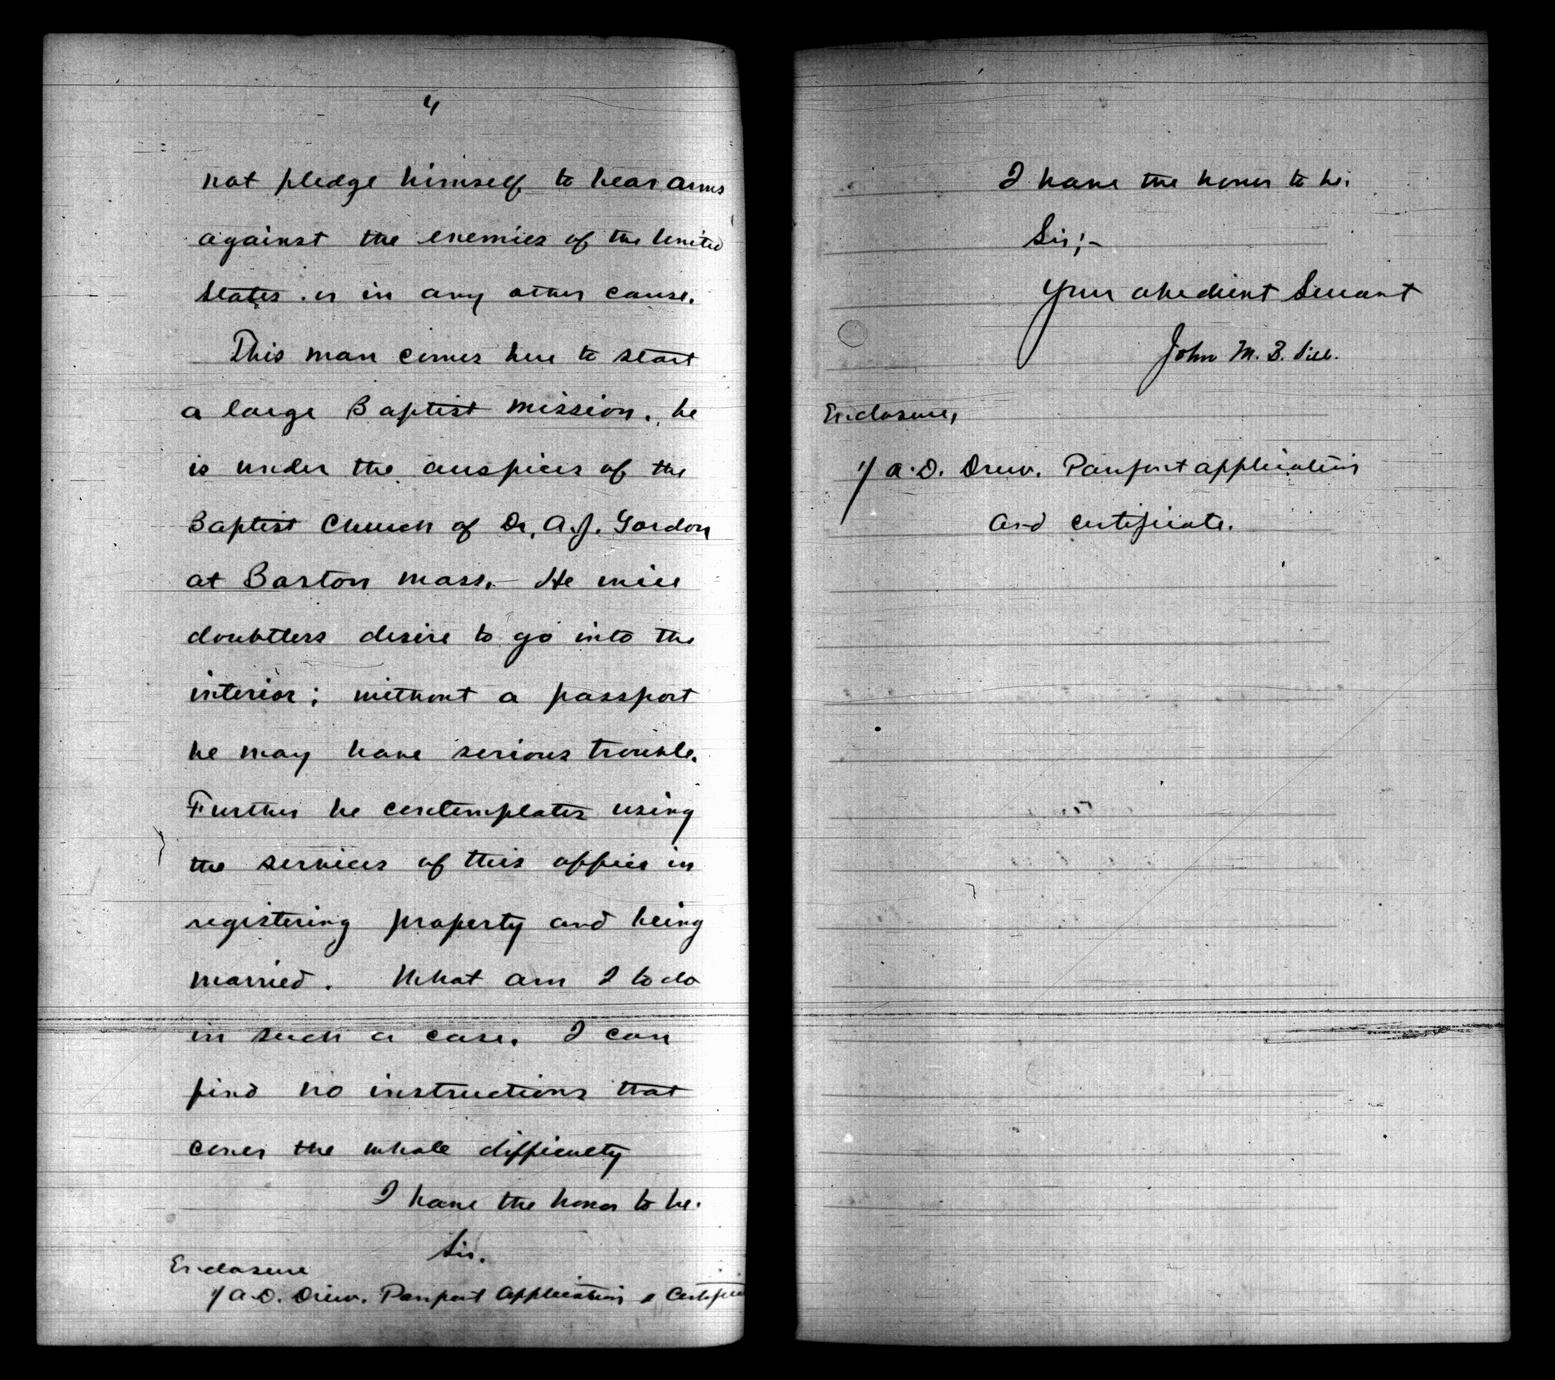 4
not pledge himself to bear arms
against the enemies of the United
States. or in any other cause.
This man comes here to start
a large Baptist mission. he
is under the auspices of the
Baptist Church of Dr. A.J. Gordon
at Boston Mass. — He will
doubtless desire to go into the
interior; without a passport
he may have serious trouble.
Further he contemplates using
the services of this office in
registering property and being
married. What am I to do
in such a case. I can
find no instructions that
cover the whole difficulty
I have the honor to be.
Sir.
Enclosure
1/ A.D. Drew. Passport Application &
I have the honor to be.
Sir;-
Your obedient Servant
John M. B. Sill.
Enclosure,
1/ A.D. Drew. Passport application
and certificate.